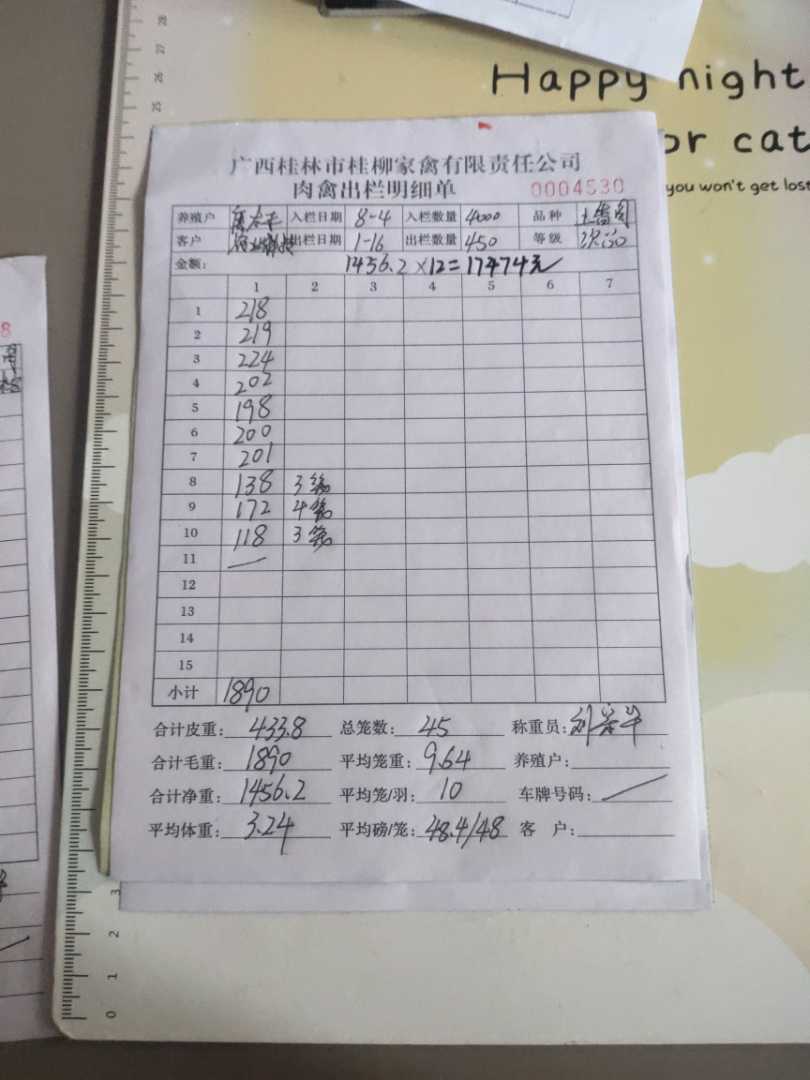 Happy night
or cat
you won't get lost
广西桂林市桂柳家禽有限责任公司
肉禽出栏明细单 0004530
养殖户 入栏日期 8-4 入栏数量 4000 品种
客户 出栏日期 1-16 出栏数量 450 等级
金额: 1456.2×12=17474元
1 2 3 4 5 6 7
1 218
2 219
3 224
4 202
5 198
6 200
7 201
8 138 3笼
9 172 4笼
10 118 3笼
11 —
12
13
14
15
小计 1890
合计皮重: 433.8 总笼数: 45 称重员:
合计毛重: 1890 平均笼重: 9.64 养殖户:
合计净重: 1456.2 平均笼/羽: 10 车牌号码:
平均体重: 3.24 平均磅/笼: 48.4/48 客 户: